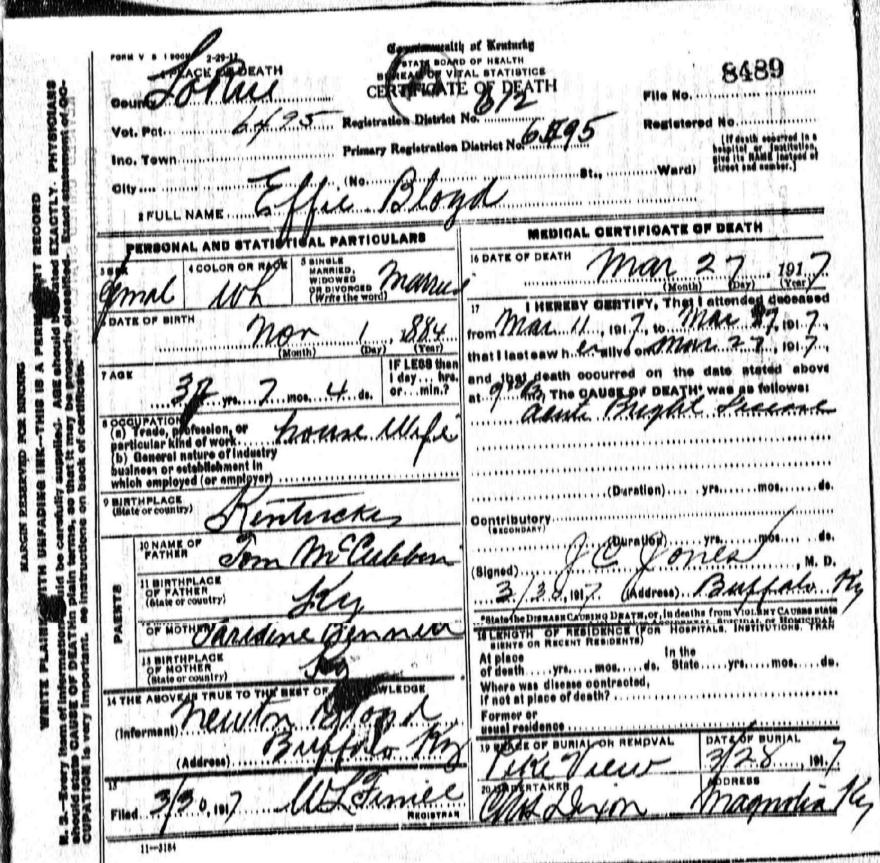 FORM V S 1 2-29-12
Commonwealth of Kentucky
STATE BOARD OF HEALTH
BUREAU OF VITAL STATISTICS
CERTIFICATE OF DEATH
1 PLACE OF DEATH
County LaRue
File No. 8489
Vot. Pct. 6495 Registration District No. 612
Registered No.
Inc. Town Primary Registration District No. 6495
[If death occurred in a hospital or institution, give its NAME instead of street and number.]
City (No. St., Ward)
2 FULL NAME Effie Bloyd
PERSONAL AND STATISTICAL PARTICULARS
3 SEX Femal
4 COLOR OR RACE Wh
5 SINGLE, MARRIED, WIDOWED OR DIVORCED (Write the word) Married
6 DATE OF BIRTH Nov 1 1884
(Month) (Day) (Year)
7 AGE yrs. 7 mos. 4 ds.
IF LESS than 1 day... hrs. or... min.?
8 OCCUPATION
(a) Trade, profession, or particular kind of work house Wife
(b) General nature of industry
business or establishment in
which employed (or employer)
9 BIRTHPLACE
(State or country) Kentucky
PARENTS
10 NAME OF FATHER Tom McCubbin
11 BIRTHPLACE OF FATHER
(State or country) Ky
OF MOTHER
13 BIRTHPLACE OF MOTHER
(State or country) Ky
14 THE ABOVE IS TRUE TO THE BEST OF KNOWLEDGE
(Informant) Newton Bloyd
(Address) Buffalo Ky
15
Filed 3/30, 1917
REGISTRAR
11-3184
MEDICAL CERTIFICATE OF DEATH
16 DATE OF DEATH Mar 27, 1917
(Month) (Day) (Year)
17 I HEREBY CERTIFY, That I attended deceased
from Mar 11, 1917, to Mar 27, 1917,
that I last saw her alive on Mar 27, 1917,
and that death occurred on the date stated above
at The CAUSE OF DEATH* was as follows:
Acute Bright
(Duration) yrs. mos. ds.
Contributory
(SECONDARY)
(Duration) yrs. mos. ds.
(Signed) J C Jones, M. D.
3/30, 1917 (Address) Buffalo Ky
*State the DISEASE CAUSING DEATH, or, in deaths from VIOLENT CAUSES state
18 LENGTH OF RESIDENCE (FOR HOSPITALS, INSTITUTIONS, TRANSIENTS OR RECENT RESIDENTS)
At place of death yrs. mos. ds. In the State yrs. mos. ds.
Where was disease contracted,
if not at place of death?
Former or
usual residence
19 PLACE OF BURIAL OR REMOVAL Pike View
DATE OF BURIAL 3/28, 1917
20 UNDERTAKER Dixon
ADDRESS Magnolia Ky
MARGIN RESERVED FOR BINDING